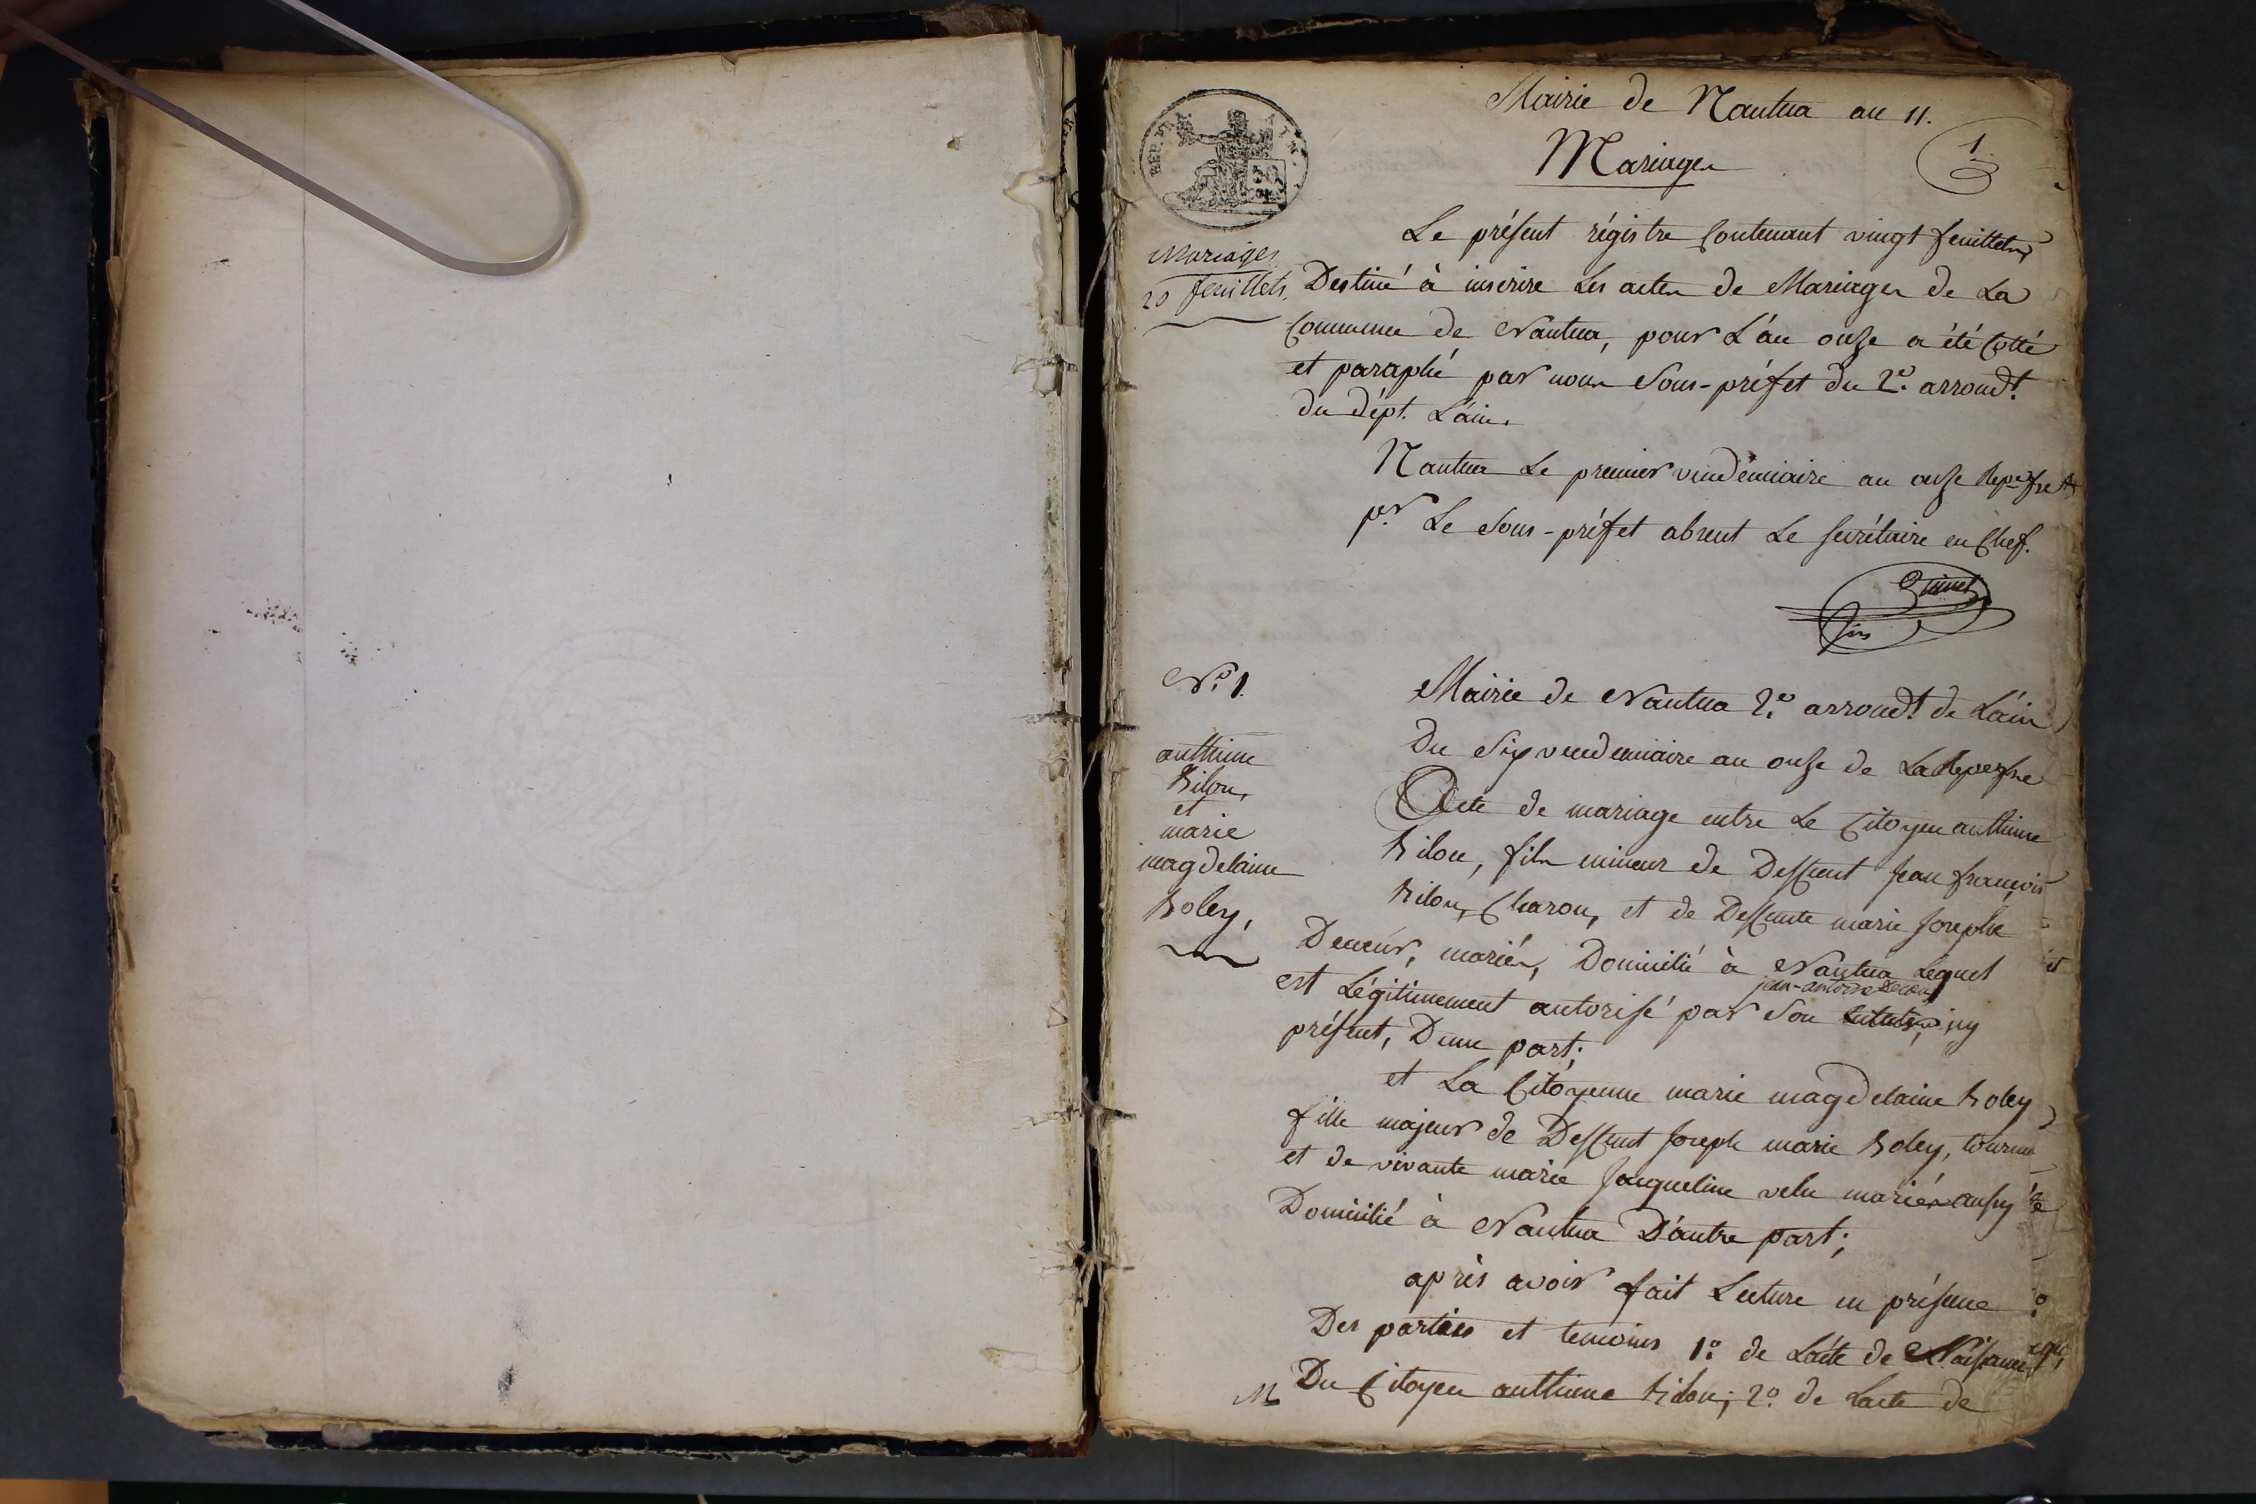 Mairie de Nantua an 11.
1
Mariages
REP. FRA
50
Mariages
20 feuillets.
Le présent régistre Contenant vingt feuillets
Destiné à inscrire Les actes de Mariages de La
Commune de Nantua, pour L'an onze a été Cotté
et paraphé par nous Sous-préfet du 2e. arrondt.
du dépt. L'ain.
Nantua Le premier vendémiaire an onze
pr. Le Sous-préfet absent Le Secrétaire en Chef.
No. 1.
anthime
et
marie
magdelaine
Mairie de Nantua 2e. arrondt. de L'ain
Du Six vendemiaire an onze de La
Acte de mariage entre Le Citoyen anthime
fils mineur de Deffunt Jean françois
et de Deffunte marie Josephe
mariés, Domicilié à Nantua Lequel
est Légitimement autorisé par Son
présent, D'une part;
et La Citoyenne marie magdelaine
fille majeur de Deffunt Joseph marie
et de vivante marie Jacqueline velu mariés aussy
Domicilié à Nantua D'autre part;
après avoir fait Lecture en présence
Des parties et temoins 1o. de L'acte de Naissance
Du Citoyen anthime 2o. de L'acte de